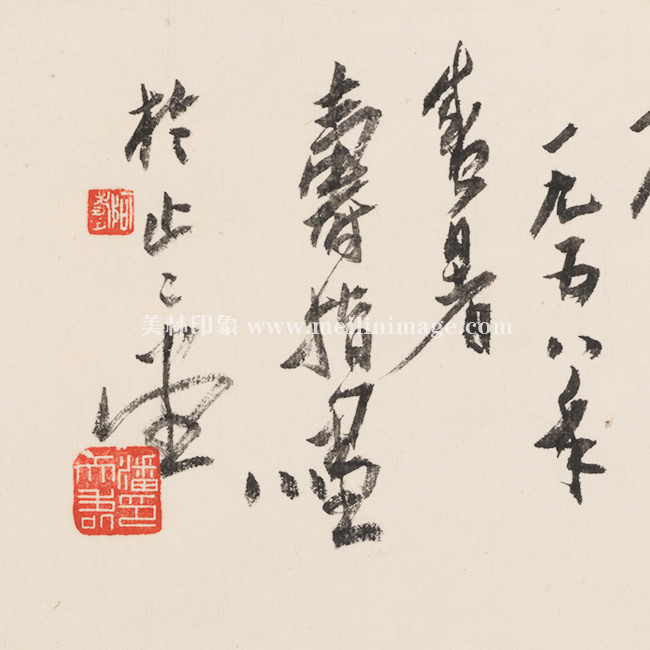 一九五八年
盛暑
壽指墨
於止止堂
阿壽
潘天壽印
美林印象 www.meilinimage.com